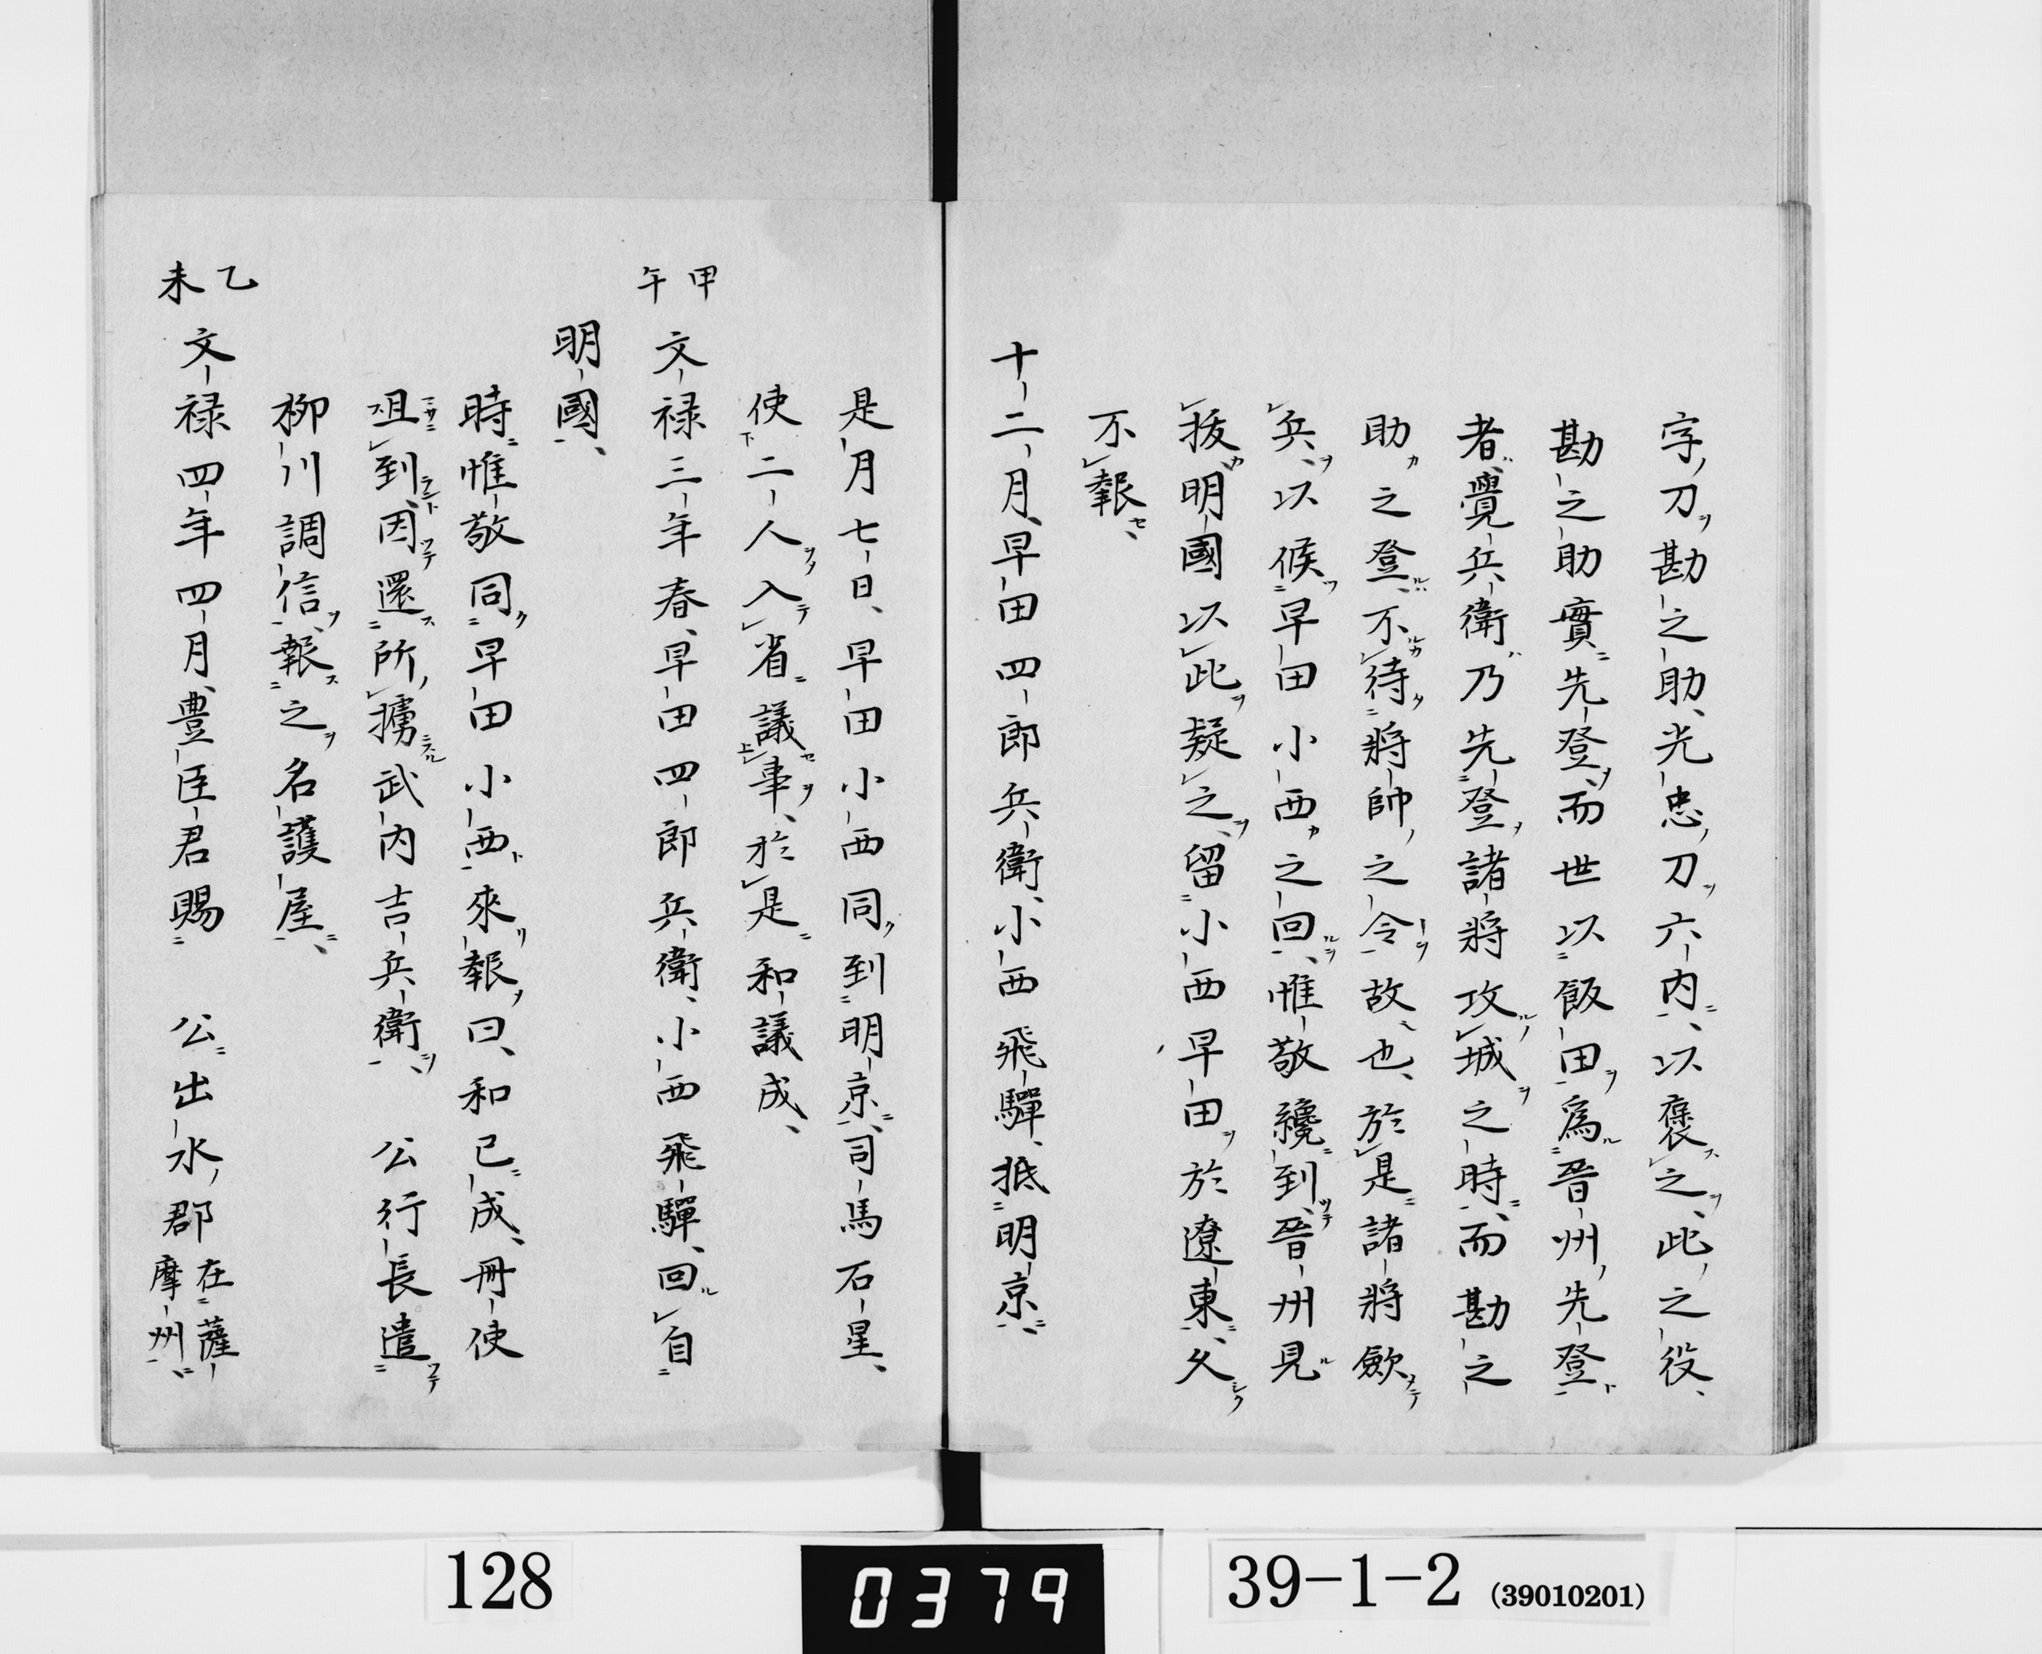 字刀勘之助光忠刀六内以褒之此之役
勘之助實先登而世以飯田為晉州先登
者覺兵衛乃先登諸將攻城之時而勘之
助之登不待將帥之令故也於是諸將歛
兵以候早田小西之回惟敬纔到晉州見
拔明國以此疑之留小西早田於遼東久
不報
十二月早田四郎兵衛小西飛驒抵明京
是月七日早田小西同到明京司馬石星
使二人入省議事於是和議成
甲午
文禄三年春早田四郎兵衛小西飛驒回自
明國
時惟敬同早田小西來報曰和已成冊使
俎到因還所擄武内吉兵衛 公行長遣
柳川調信報之名護屋
乙未
文禄四年四月豊臣君賜 公出水郡在薩摩州
128
0379
39-1-2 (39010201)